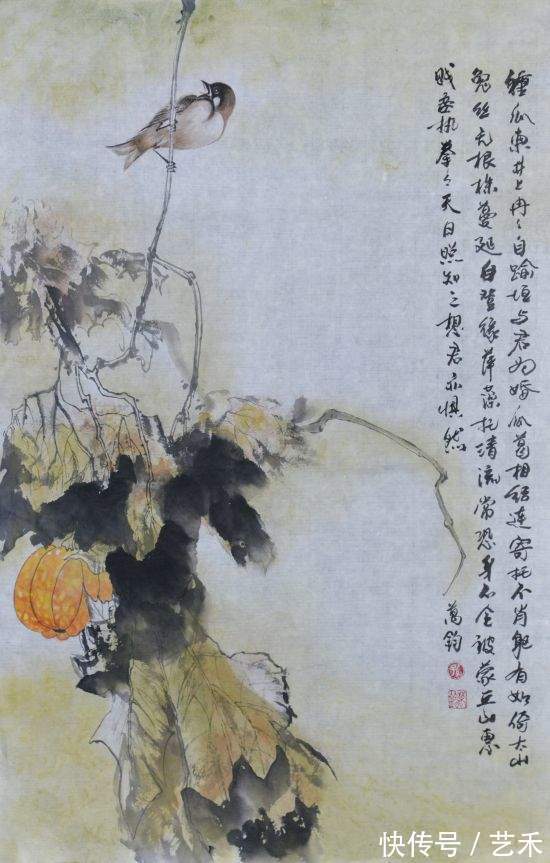 種瓜東井上冉〻自踰垣与君为婚瓜葛相結連寄托不肖躯有如倚太山
兔丝无根株蔓延自登缘萍藻托清流常恐身不全被蒙丘山惠
贱妾执拳〻天日照知之想君亦惧然
萬鈞
快传号 / 艺禾